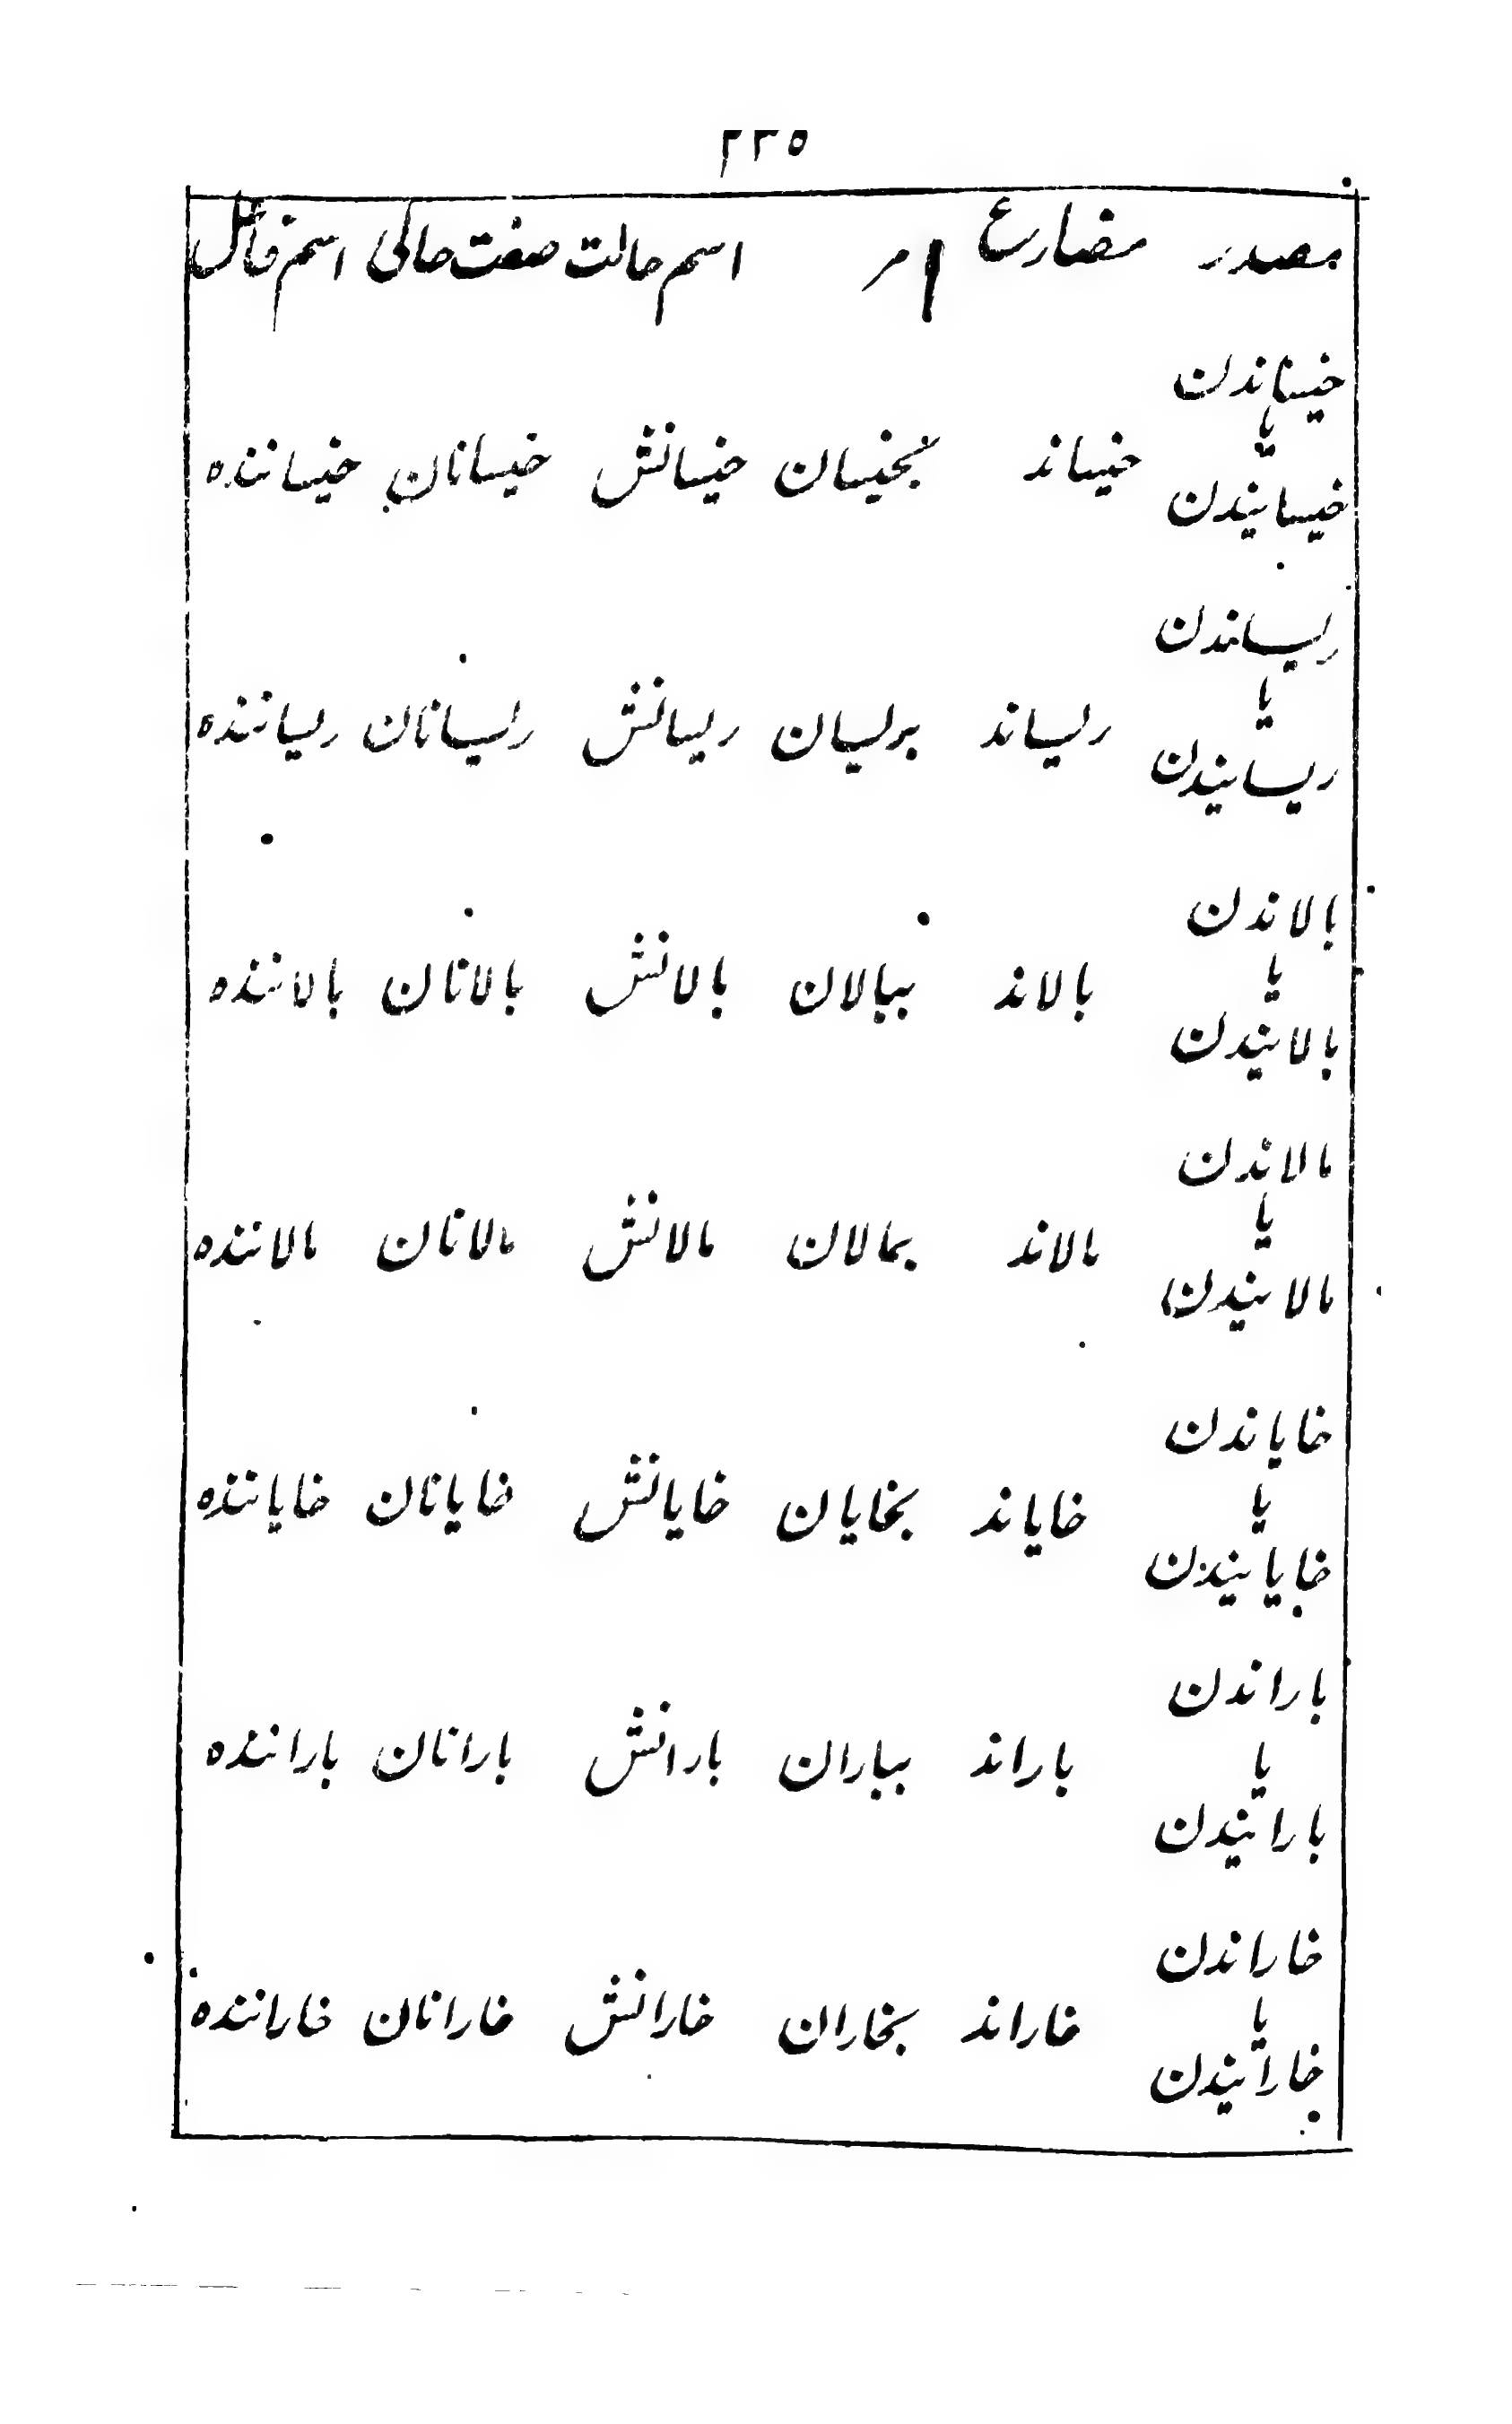 ۲۳۵
مصدر مضارع امر اسم حالت صفت حالی اسم فاعل
خیساندن
یا
خیساند بخیسان خیسانش خیسانان خیساننده
خیسانیدن
ریساندن
یا
ریساند بریسان ریسانش ریسانان ریساننده
ریسانیدن
بالاندن
یا
بالاند ببالان بالانش بالانان بالاننده
بالانیدن
مالاندن
یا
مالاند بمالان مالانش مالانان مالاننده
مالانیدن
خایاندن
یا
خایاند بخایان خایانش خایانان خایاننده
خایانیدن
باراندن
یا
باراند بباران بارانش بارانان باراننده
بارانیدن
خاراندن
یا
خاراند بخاران خارانش خارانان خاراننده
خارانیدن